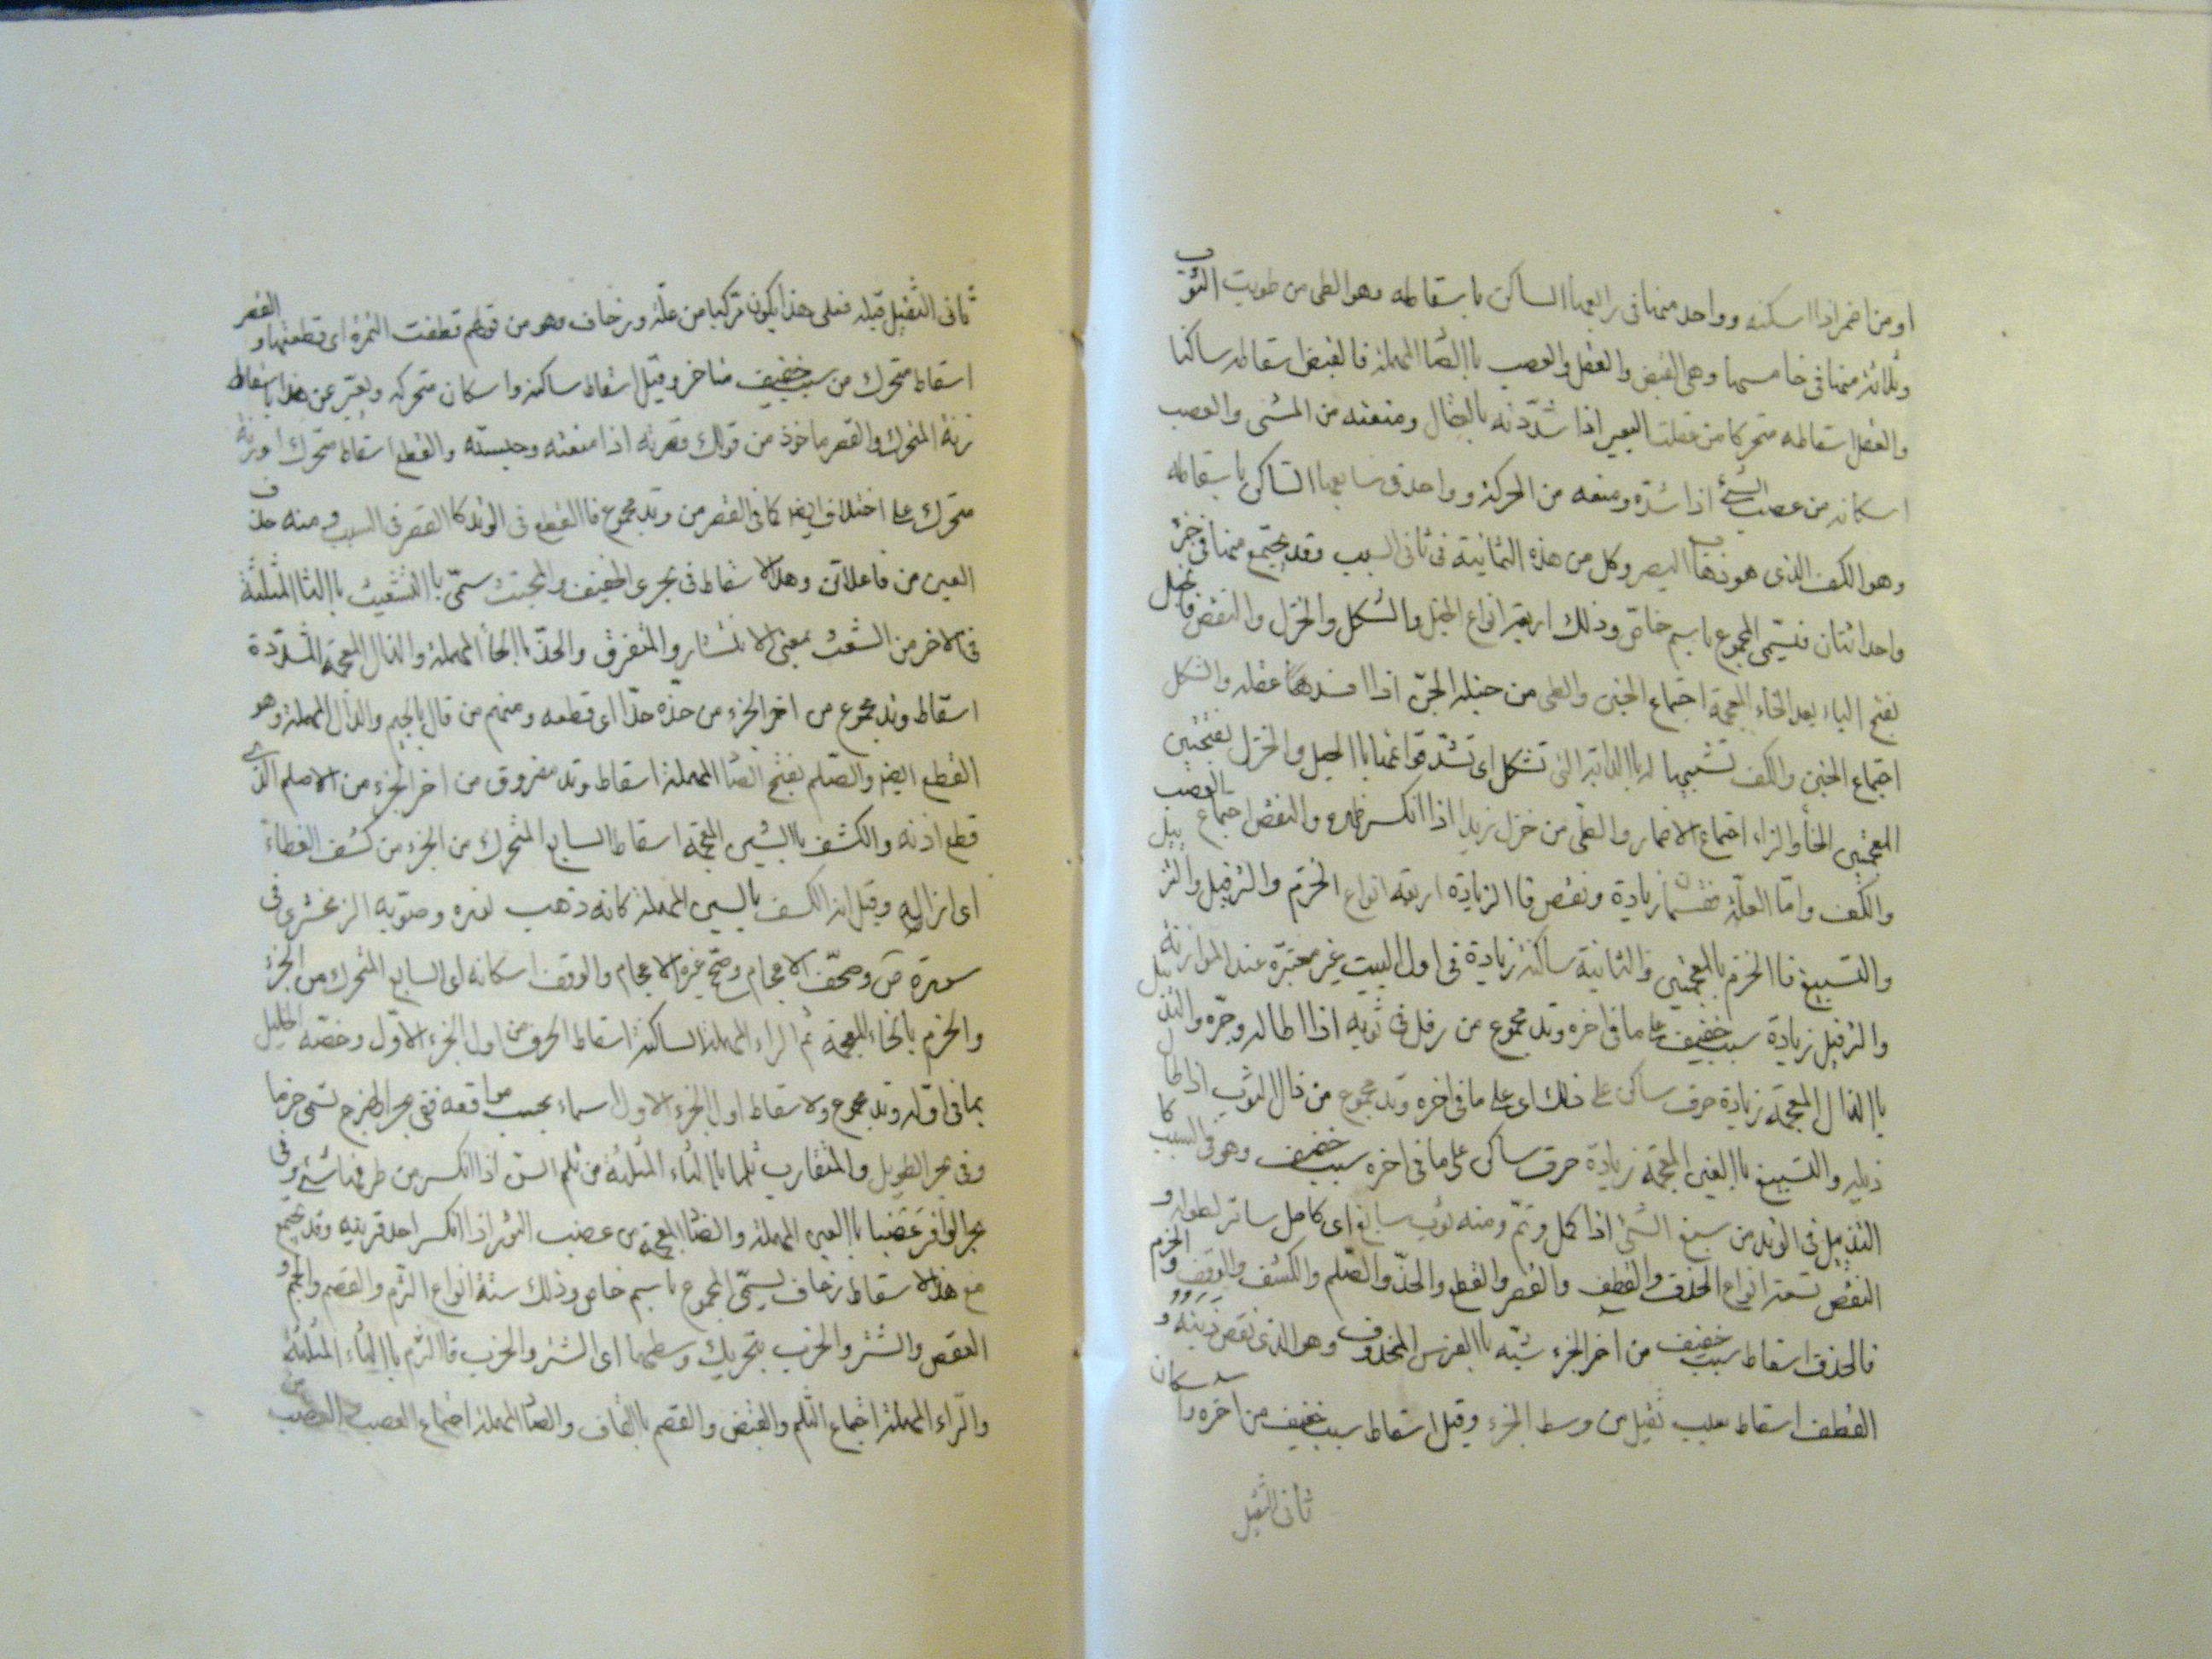 او من اضمر اذا اسكنه وواحد منها فى رابعها الساكن باسقاطه وهو الطى من طويت الثوب
وثلاثة منها فى خامسها وهى القبض والعقل والعصب بالصاد المهملة فالقبض اسقاطه ساكنا
والعقل اسقاطه متحركا من عقلت البعير اذا شددته بالعقال ومنعته من المشى والعصب
اسكانه من عصب الشئ اذا شده ومنعه من الحركة وواحد فى سابعها الساكن باسقاطه
وهو الكف الذى هو ذهاب البصر وكل من هذه الثمانية فى ثانى السبب وقد يجتمع منها فى جزء
واحد اثنان فيسمى المجموع باسم خاص وذلك اربعة انواع الخبل والشكل والخزل والنقص فالخبل
بفتح الباء بعد الخاء المعجمة اجتماع الخبن والطى من خبله الحبّ اذا افسد عقله والشكل
اجتماع الخبن والكف تشبيها له بالدابة التى تشكل اى تشد قوائمها بالحبل والخزل بفتحتين
المعجمتين الخاء والزاء اجتماع الاضمار والطى من خزل زيد اذا انكسر ظهره والنقص اجتماع العصب
والكف واما العلة فقسمان زيادة ونقص فالزيادة اربعة انواع الخزم والترفيل والتذييل
والتسبيغ فالخزم بالمعجمتين والثانية ساكنة زيادة فى اول البيت غير معتبرة عند الموازنة
والترفيل زيادة سبب خفيف على ما فى اخره وتد مجموع من رفل فى ثوبه اذا اطاله وجره والتذييل
بالذال المعجمة زيادة حرف ساكن على ذلك اى على ما فى اخره وتد مجموع من ذال الثوب اذا طال
ذيله والتسبيغ بالغين المعجمة زيادة حرف ساكن على ما فى اخره سبب خفيف وهو فى السبب كا
التذييل فى الوتد من سبغ الشئ اذا كمل وتم ومنه ثوب سابغ اى كامل ساتر لطوله و
النقص تسعة انواع الحذف والقطف والقصر والقطع والحذّ والصلم والكشف والوقف والخرم
فالحذف اسقاط سبب خفيف من اخر الجزء شبه بالفرس المحذوف وهو الذى نقص ذنبه و
القطف اسقاط سبب ثقيل من وسط الجزء وقيل اسقاط سبب خفيف من اخره واسكان
ثانى الثقيل
ثانى الثقيل قبله فعلى هذا يكون تركبا من علة وزحاف وهو من قولهم قطفت الثمرة اى قطعتها والقصر
اسقاط متحرك من سبب خفيف متاخر وقيل اسقاط ساكنه واسكان متحركه ويعبر عن هذا باسقاط
زنة المتحرك والقصر ماخوذ من قولك قصرته اذا منعته وحبسته والقطع اسقاط متحرك او زنة
متحرك على اختلاف ايضا كما فى القصر من وتد مجموع فالقطع فى الوتد كالقصر فى السبب ومنه حذف
العين من فاعلاتن وهذا الاسقاط فى بحرى الخفيف والمجتث سمى بالتشعيث بالثا المثلثة
فى الاخر من الشعث بمعنى الانتشار والتفرق والحذّ بالحاء المهملة والذال المعجمة المشددة
اسقاط وتد مجموع من اخر الجزء من حذّه حذّا اى قطعه ومنهم من قال بالجيم والدال المهملة وهو
القطع ايضا والصلم بفتح الصاد المهملة اسقاط وتد مفروق من اخر الجزء من الاصلم الذى
قطع اذنه والكشف بالشين المعجمة اسقاط السابع المتحرك من الجزء من كشف الغطاء
اى ازاله وقيل انه الكسف بالسين المهملة كانه ذهب نوره وصوّبه الزمخشرى فى
سورة ص وصحّف الاعجام وصحّ غيره الاعجام والوقف اسكانه اى السابع المتحرك من الجزء
والخرم بالخاء المعجمة ثم الراء المهملة الساكنة اسقاط الحرف من اول الجزء الاول وخصه الخليل
بما فى اوله وتد مجموع ولاسقاط اول الجزء الاول اسماء بحسب مواقعه ففى بحر الهزج تسمى خرما
وفى بحر الطويل والمتقارب ثلما بالثاء المثلثة من ثلم السن اذا انكسر من طرفها شئ وفى
بحر الوافر عضبا بالعين المهملة والضاد المعجمة من عضب الثور اذا انكسر احد قرنيه وقد يجتمع
مع هذا الاسقاط زحاف يسمى المجموع باسم خاص وذلك ستة انواع الثرم والقصم والجمم و
العقص والشتر والخرب بتحريك وسطهما اى الشتر والخرب فالثرم بالثاء المثلثة
والراء المهملة اجتماع الثلم والقبض والقصم بالقاف والصاد المهملة اجتماع العصب من العضب